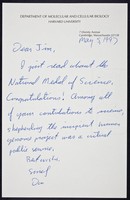 DEPARTMENT OF MOLECULAR AND CELLULAR BIOLOGY
HARVARD UNIVERSITY
7 Divinity Avenue
Cambridge, Massachusetts 02138
May 5, 1997
Dear Jim,
I just read about the
National Medal of Science,
Congratulations! Among all
of your contributions to science,
shepherding the incipient human
genome project was a critical
public service.
Best wishes